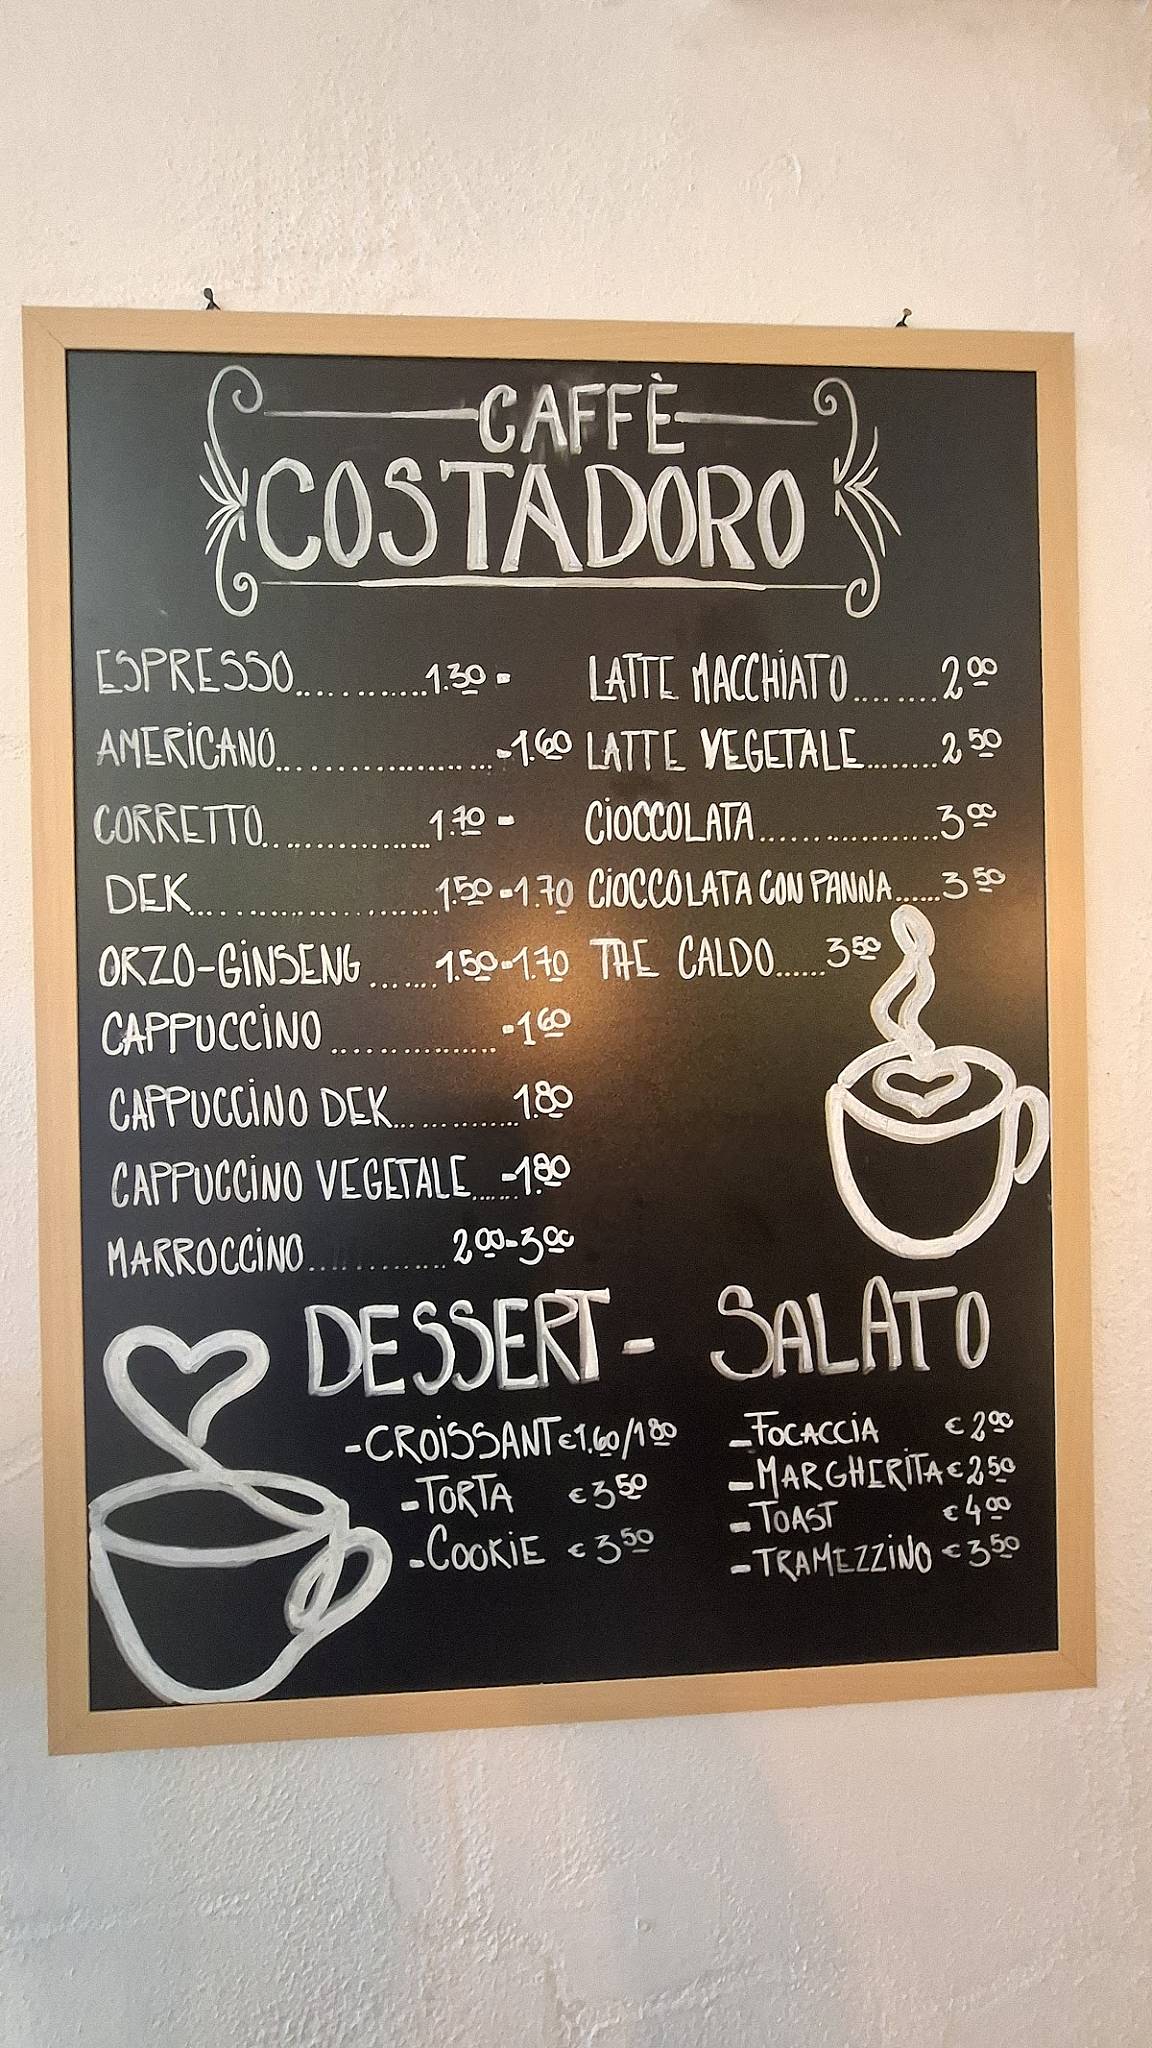 CAFFÈ
COSTADORO
ESPRESSO............1.30 -
AMERICANO.....................-1.60
CORRETTO.................1.70 -
DEK.......................1.50-1.70
ORZO-GINSENG .......1.50-1.70
CAPPUCCINO ................-1.60
CAPPUCCINO DEK............1.80
CAPPUCCINO VEGETALE......-1.80
MARROCCINO..............2.00-3.00
LATTE MACCHIATO........2.00
LATTE VEGETALE........2.50
CIOCCOLATA.................3.00
CIOCCOLATA CON PANNA.....3.50
THE CALDO......3.50
DESSERT -
-CROISSANT €1.60/1.80
-TORTA €3.50
-COOKIE €3.50
SALATO
-FOCACCIA €2.00
-MARGHERITA €2.50
-TOAST €4.00
-TRAMEZZINO €3.50